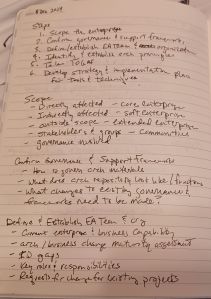 8 Dec 2024
Steps
1. Scope the enterprise
2. Confirm governance & support frameworks
3. Define/establish EA Team & organization
4. Identify & establish arch principles
5. Tailor TOGAF
6. Develop strategy & implementation plan
for tools & techniques
Scope
- Directly affected - core enterprise
- Indirectly affected - soft enterprise
- outside scope - extended enterprise
- stakeholders & groups - communities
- governance involved
Confirm Governance & Support Frameworks
- How to govern arch materials
- What does arch repository look like / function
- What changes to existing governance &
frameworks need to be made?
Define & Establish EA Team & org
- Current enterprise & business capability
- arch/business change maturity assessment
- ID gaps
- Key roles & responsibilities
- Requests for change for existing projects